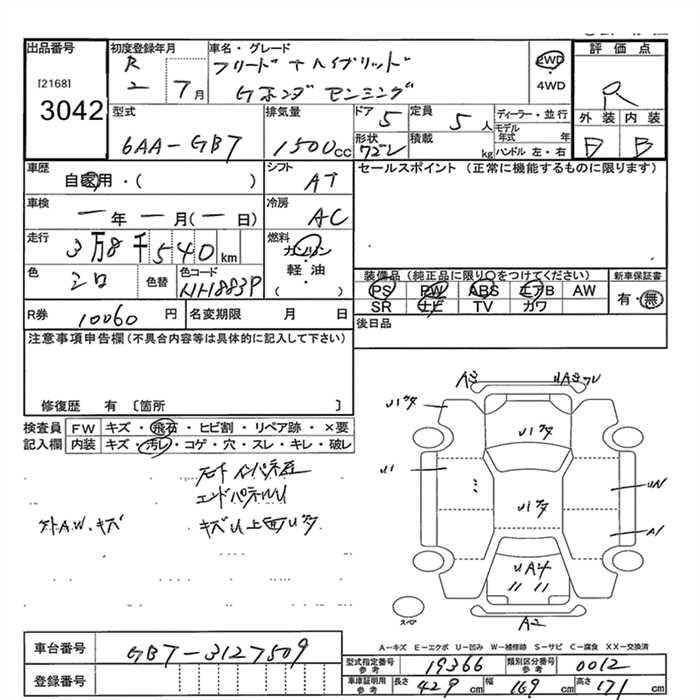 出品番号
[2168]
3042
初度登録年月
R 2 7月
車名・グレード
フリード + ハイブリッド
Gホンダ センシング
2WD
4WD
評価点
R
外装 内装
D B
型式
6AA-GB7
排気量
1500cc
ドア 5
定員 5人
形状 ワゴン
積載 kg
ディーラー・並行
モデル年式 年
ハンドル 左・右
車歴
自家用・( )
シフト
AT
セールスポイント (正常に機能するものに限ります)
車検
一年一月(一日)
冷房
AC
走行
3万8千540km
燃料
ガソリン
軽・油
( ・ )
色
シロ
色替
色コード
NH883P
装備品(純正品に限り○をつけてください)
PS PW ABS エアB AW
SR ナビ TV カワ
新車保証書
有・無
R券 10060円
名変期限 月 日
後日品
注意事項申告欄(不具合内容等は具体的に記入して下さい)
修復歴 有 〔箇所 〕
検査員記入欄
FW キズ・飛石・ヒビ割・リペア跡・×要
内装 キズ・汚レ・コゲ・穴・スレ・キレ・破レ
エンドパネルU
外A.W.キズ
キズU上面Uキズ
A3
U1キズ
U1
U1キズ
U1キズ
UA4
A1
A2
スペア
A-キズ E-エクボ U-凹み W-補修跡 S-サビ C-腐食 XX-交換済
車台番号 GB7-3127509
登録番号
型式指定番号参考 19366
類別区分番号参考 0012
車庫証明用参考 長さ 429cm 幅 169cm 高さ 171cm